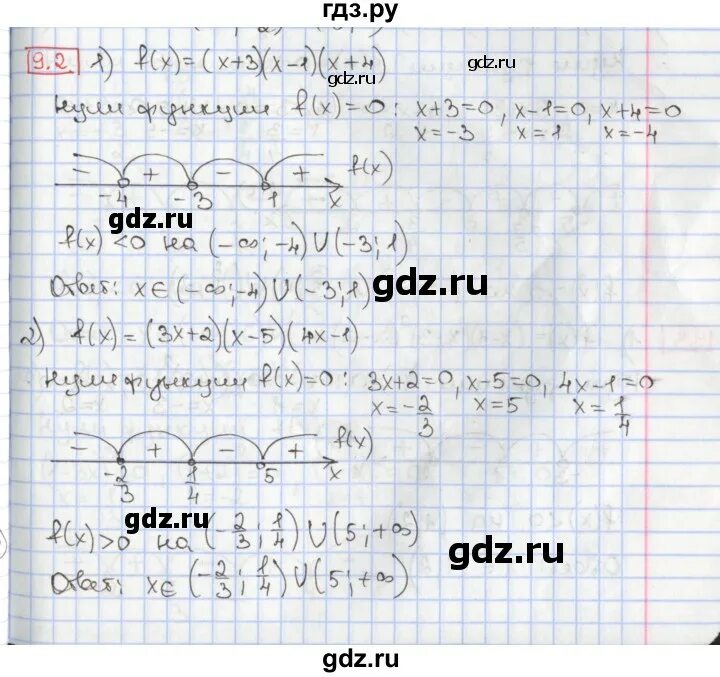 гдз.ру
9.2 1) f(x)=(x+3)(x-1)(x+4)
Нули функции f(x)=0: x+3=0, x-1=0, x+4=0
x=-3 x=1 x=-4
- + - + f(x)
-4 -3 1 x
gdz.ru
f(x)<0 на (-∞;-4)∪(-3;1)
gdz.ru
Ответ: x∈(-∞;-4)∪(-3;1)
2) f(x)=(3x+2)(x-5)(4x-1)
Нули функции f(x)=0: 3x+2=0, x-5=0, 4x-1=0
x=-2/3 x=5 x=1/4
- + - + f(x)
-2/3 1/4 5 x
gdz.ru
f(x)>0 на (-2/3;1/4)∪(5;+∞)
gdz.ru
Ответ: x∈(-2/3;1/4)∪(5;+∞)
gdz.ru